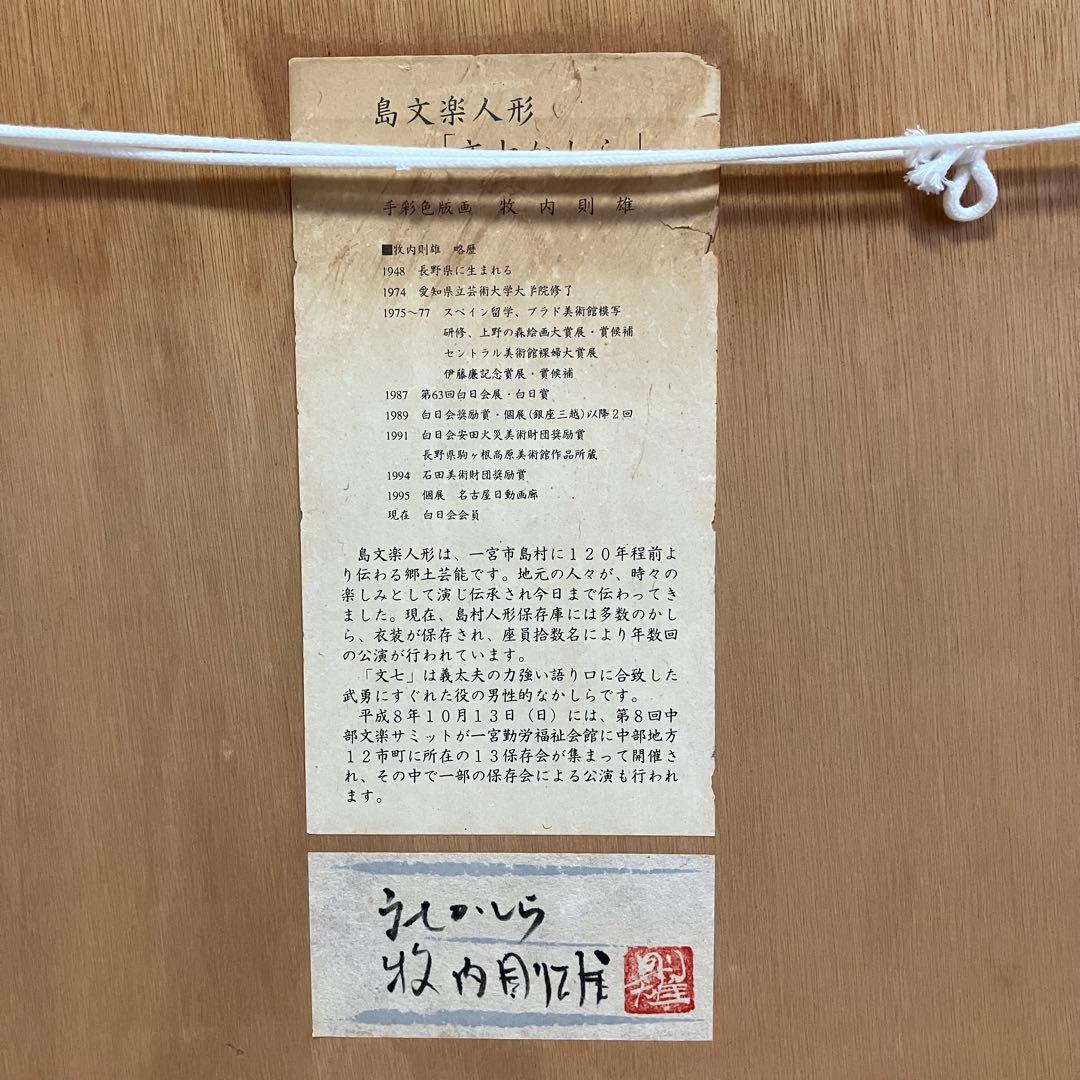 島文楽人形
「文七かしら」
手彩色版画　牧内則雄
■牧内則雄　略歴
1948　長野県に生まれる
1974　愛知県立芸術大学大学院修了
1975〜77　スペイン留学、プラド美術館模写
研修、上野の森絵画大賞展・賞候補
セントラル美術館裸婦大賞展
伊藤廉記念賞展・賞候補
1987　第63回白日会展・白日賞
1989　白日会奨励賞・個展(銀座三越)以降２回
1991　白日会安田火災美術財団奨励賞
長野県駒ヶ根高原美術館作品所蔵
1994　石田美術財団奨励賞
1995　個展　名古屋日動画廊
現在　白日会会員
島文楽人形は、一宮市島村に１２０年程前よ
り伝わる郷土芸能です。地元の人々が、時々の
楽しみとして演じ伝承され今日まで伝わってき
ました。現在、島村人形保存庫には多数のかし
ら、衣装が保存され、座員拾数名により年数回
の公演が行われています。
「文七」は義太夫の力強い語り口に合致した
武勇にすぐれた役の男性的なかしらです。
平成８年１０月１３日（日）には、第８回中
部文楽サミットが一宮勤労福祉会館に中部地方
１２市町に所在の１３保存会が集まって開催さ
れ、その中で一部の保存会による公演も行われ
ます。
文七かしら
牧内則雄
則雄